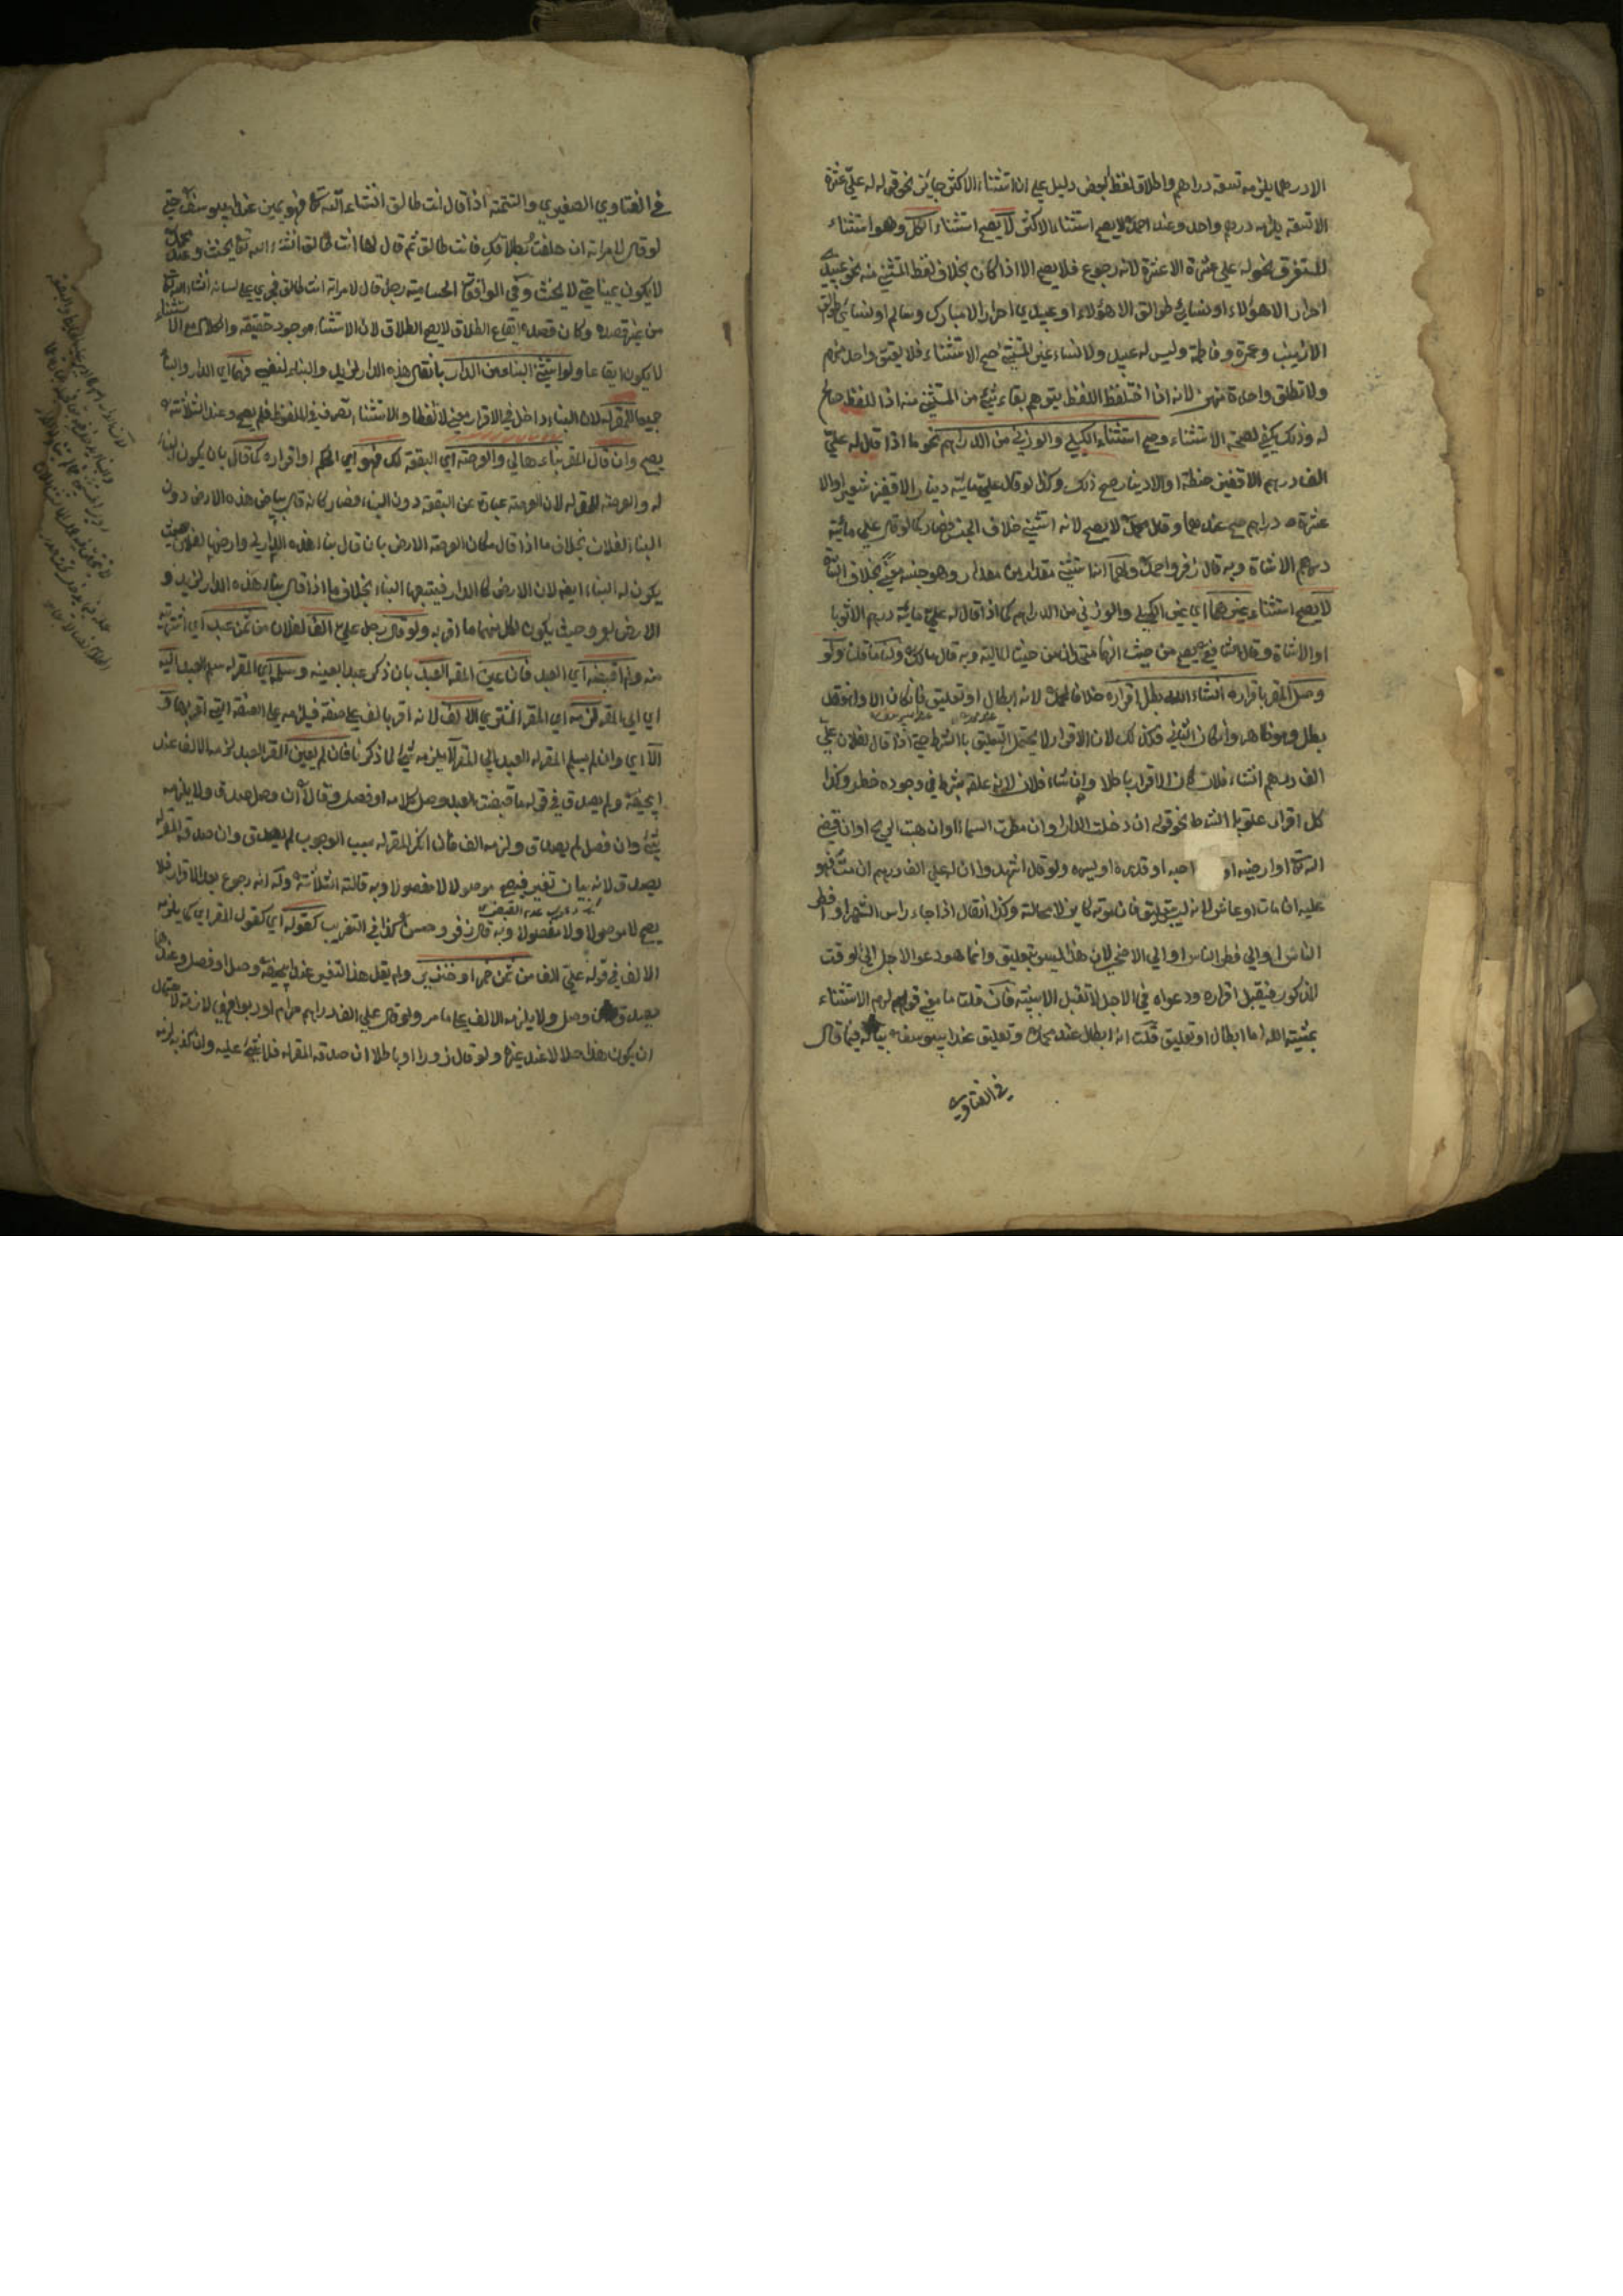 الا درهما يلزمه تسعة دراهم واطلاق لفظ البعض دليل على ان استثناء الاكثر جايز نحو قوله له علي عشرة
الا تسعة يلزمه درهم واحد وعند احمد لا يصح استثناء الاكثر لا يصح استثناء الكل وهو استثناء
المستغرق نحو له علي عشرة الا عشرة لانه رجوع فلا يصح الا اذا كان بخلاف لفظ المستثنى منه نحو عبيدي
احرار الا هؤلاء او نسائي طوالق الا هؤلاء او عبيدي احرار الا مبارك وسالم او نسائي طوالق
الا زينب وعمرة وفاطمة وليس له عبيد ولا نساء غير المستثنى صح الاستثناء فلا يعتق واحد منهم
ولا تطلق واحدة منهن لانه اذا اختلف اللفظ يتوهم بقاء شيء من المستثنى منه اذا اللفظ صالح
له وذلك يكفي لصحة الاستثناء وصح استثناء الكيلي والوزني من الدراهم نحو ما اذا قال له علي
الف درهم الا قفيز حنطة او الا دينار صح ذلك وكذا لو قال علي مائة دينار الا قفيز شعير او الا
عشرة دراهم صح عندهما وقال محمد لا يصح لانه استثنى خلاف الجنس فصار كما لو قال علي مائة
درهم الا شاة وبه قال زفر واحمد ولهما انه استثنى مقدارا من مقدار وهو جنسه معنى بخلاف الشاة
لا يصح استثناء غيرهما اي غير الكيلي والوزني من الدراهم كما اذا قال له علي مائة درهم الا ثوبا
او الا شاة وقال الشافعي يصح من حيث انهما متحدان من حيث المالية وبه قال مالك ولنا ما قلنا ولو
وصل المقر باقراره انشاء الله بطل اقراره خلافا لمحمد لانه ابطال او تعليق فان كان الاول فقد
بطل وهو ظاهر وان كان الثاني فكذلك لان الاقرار لا يحتمل التعليق بالشرط حتى اذا قال لفلان علي
الف درهم انشاء فلان كان الاقرار باطلا وان شاء فلان لانه علقه بشرط في وجوده خطر وكذا
كل اقرار علق بالشرط نحو قوله ان دخلت الدار او ان مطرت السماء او ان هبت الريح او ان قضى
الله تعالى او ارضيه او احبه او قدره او يسره ولو قال اشهدوا ان له علي الف درهم ان مت فهو
عليه ان مات او عاش لانه ليس بتعليق فان موته كاين لا محالة وكذا ان قال اذا جاء راس الشهر او افطر
الناس او الى فطر الناس او الى الاضحى لان هذا ليس بتعليق وانما هو دعوى الاجل الى الوقت
المذكور فيقبل اقراره ودعواه في الاجل لا تقبل الا ببينة فان قلت ما معنى قولهم لزم الاستثناء
بمشيئة الله اما ابطال او تعليق قلت انه ابطال عند محمد وتعليق عند ابي يوسف بيانه فيما قال
في الفتاوى
في الفتاوى الصغيرى والتتمة اذا قال انت طالق انشاء الله تعالى فهو يمين عند ابي يوسف حتى
لو قال لامراته ان حلفت بطلاقك فانت طالق ثم قال لها انت طالق انشاء الله تعالى يحنث وعند محمد
لا يكون يمينا حتى لا يحنث وفي الواقعات الحسامية رجل قال لامراته انت طالق فجرى على لسانه انشاء الله تعالى
من غير قصده وكان قصده ايقاع الطلاق لا يصح الطلاق لان الاستثناء موجود حقيقة والكلام مع الاستثناء
لا يكون ايقاعا ولو استثنى البناء من الدار بان قال هذه الدار لزيد والبناء لنفسي فهما اي الدار والبناء
جميعا للمقر له لان البناء داخل في الاقرار معنى لا لفظا والاستثناء تصرف في الملفوظ فلم يصح وعند الثلاثة
يصح وان قال المقر بناءها لي والعرصة اي البقعة لك فهو اي الحكم او اقراره كما قال بان يكون البناء
له والعرصة للمقر له لان العرصة عبارة عن البقعة دون البناء فصار كانه قال بياض هذه الارض دون
البناء لفلان بخلاف ما اذا قال مكان العرصة الارض بان قال بناء هذه الدار لي وارضها لفلان حيث
يكون له البناء ايضا لان الارض كالدار فيتبعها البناء بخلاف ما اذا قال بناء هذه الدار لزيد و
الارض لعمرو حيث يكون لكل منهما ما اقر به ولو قال رجل علي الف لفلان من ثمن عبد اي اشتريته
منه ولم اقبضه اي العبد فان عين المقر العبد بان ذكر عبدا بعينه وسلم اي المقر له سلم العبد اليه
اي الى المقر لزمه اي المقر المشتري الالف لانه اقر بالف على صفة فيلزمه على الصفة التي اقر بها و
الا اي وان لم يسلم المقر له العبد الى المقر لا يلزمه شيء لما ذكرنا فان لم يعين المقر العبد لزمه الالف عند
ابي حنيفة ولم يصدق في قوله ما قبضت العبد وصل كلامه او فصل وقالا ان وصل صدق ولا يلزمه
شيء وان فصل لم يصدق ولزمه الف فان انكر المقر له سبب الوجوب لم يصدق وان صدقه المقر له
يصدق لانه بيان تغيير فيصح موصولا لا مفصولا وبه قالت الثلاثة وله انه رجوع بعد الاقرار فلا
يصح لا موصولا ولا مفصولا وبه قال زفر وحسن كذا في التقريب كقوله اي كقول المقر اي كما يلزمه
الالف في قوله علي الف من ثمن خمر او خنزير ولم يقبل هذا التفسير عند ابي حنيفة وصل او فصل وعندهما
يصدق ان وصل ولا يلزمه الالف على ما مر ولو قال علي الف درهم حرام او ربوا فهي لازمة لاحتمال
ان يكون هذا حلالا عند غيره ولو قال زورا او باطلا ان صدقه المقر له فلا شيء عليه وان كذبه لزمه